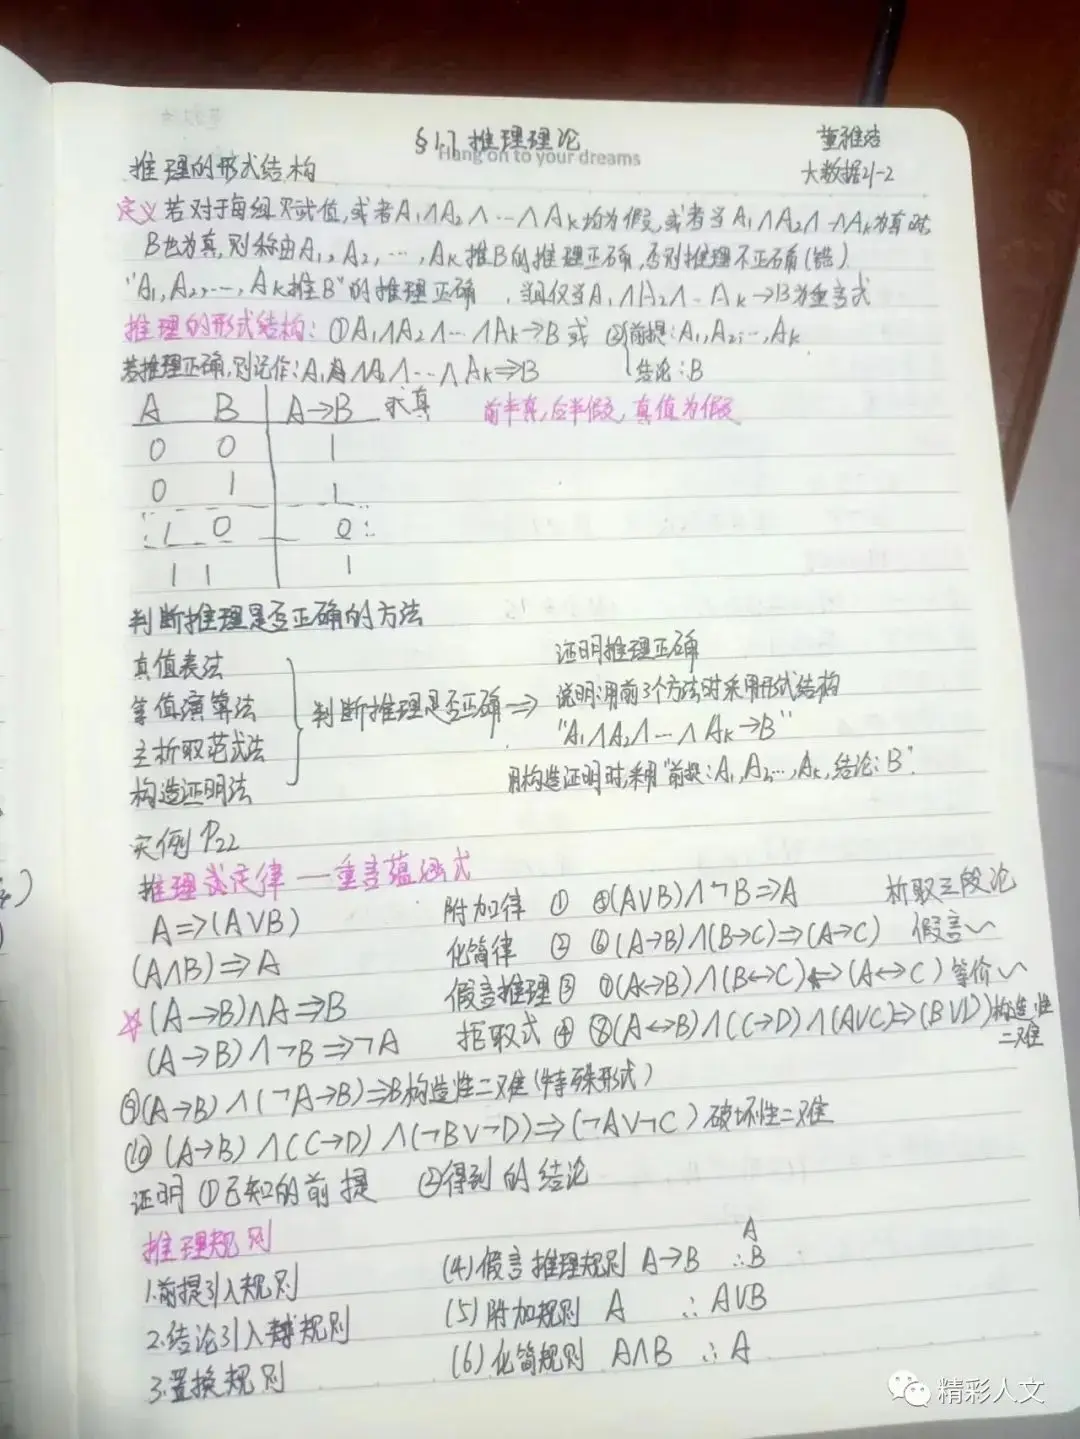 §1.7 推理理论
Hang on to your dreams
董雅洁
大数据21-2
推理的形式结构
定义 若对于每组赋值,或者A₁∧A₂∧…∧Aₖ均为假,或者当A₁∧A₂∧…∧Aₖ为真时,
B也为真,则称由A₁,A₂,…,Aₖ推B的推理正确,否则推理不正确(错).
"A₁,A₂,…,Aₖ推B"的推理正确,当且仅当A₁∧A₂∧…Aₖ→B为重言式
推理的形式结构:①A₁∧A₂∧…∧Aₖ→B 或 ②{前提:A₁,A₂,…,Aₖ
结论:B
若推理正确,则记作:A₁∧A₂∧…∧Aₖ⇒B
A B A→B 求真 前半真,后半假,真值为假
0 0 1
0 1 1
1 0 0
1 1 1
判断推理是否正确的方法
真值表法
等值演算法
主析取范式法
构造证明法
} 判断推理是否正确 ⇒
证明推理正确
说明:用前3个方法时采用形式结构
"A₁∧A₂∧…∧Aₖ→B"
用构造证明时,采用"前提:A₁,A₂,…,Aₖ,结论:B".
实例P22
推理定律—重言蕴涵式
A⇒(A∨B) 附加律 ①
(A∧B)⇒A 化简律 ②
☆(A→B)∧A⇒B 假言推理③
(A→B)∧¬B⇒¬A 拒取式 ④
⑤(A∨B)∧¬B⇒A 析取三段论
⑥(A→B)∧(B→C)⇒(A→C) 假言~
⑦(A↔B)∧(B↔C)⇒(A↔C) 等价~
⑧(A↔B)∧(C→D)∧(A∨C)⇒(B∨D) 构造性
二难
⑨(A→B)∧(¬A→B)⇒B构造性二难(特殊形式)
⑩(A→B)∧(C→D)∧(¬B∨¬D)⇒(¬A∨¬C) 破坏性二难
证明 ①已知的前提 ②得到的结论
推理规则
1.前提引入规则
2.结论引入规则
3.置换规则
A
(4)假言推理规则 A→B ∴B
(5)附加规则 A ∴A∨B
(6)化简规则 A∧B ∴A
精彩人文